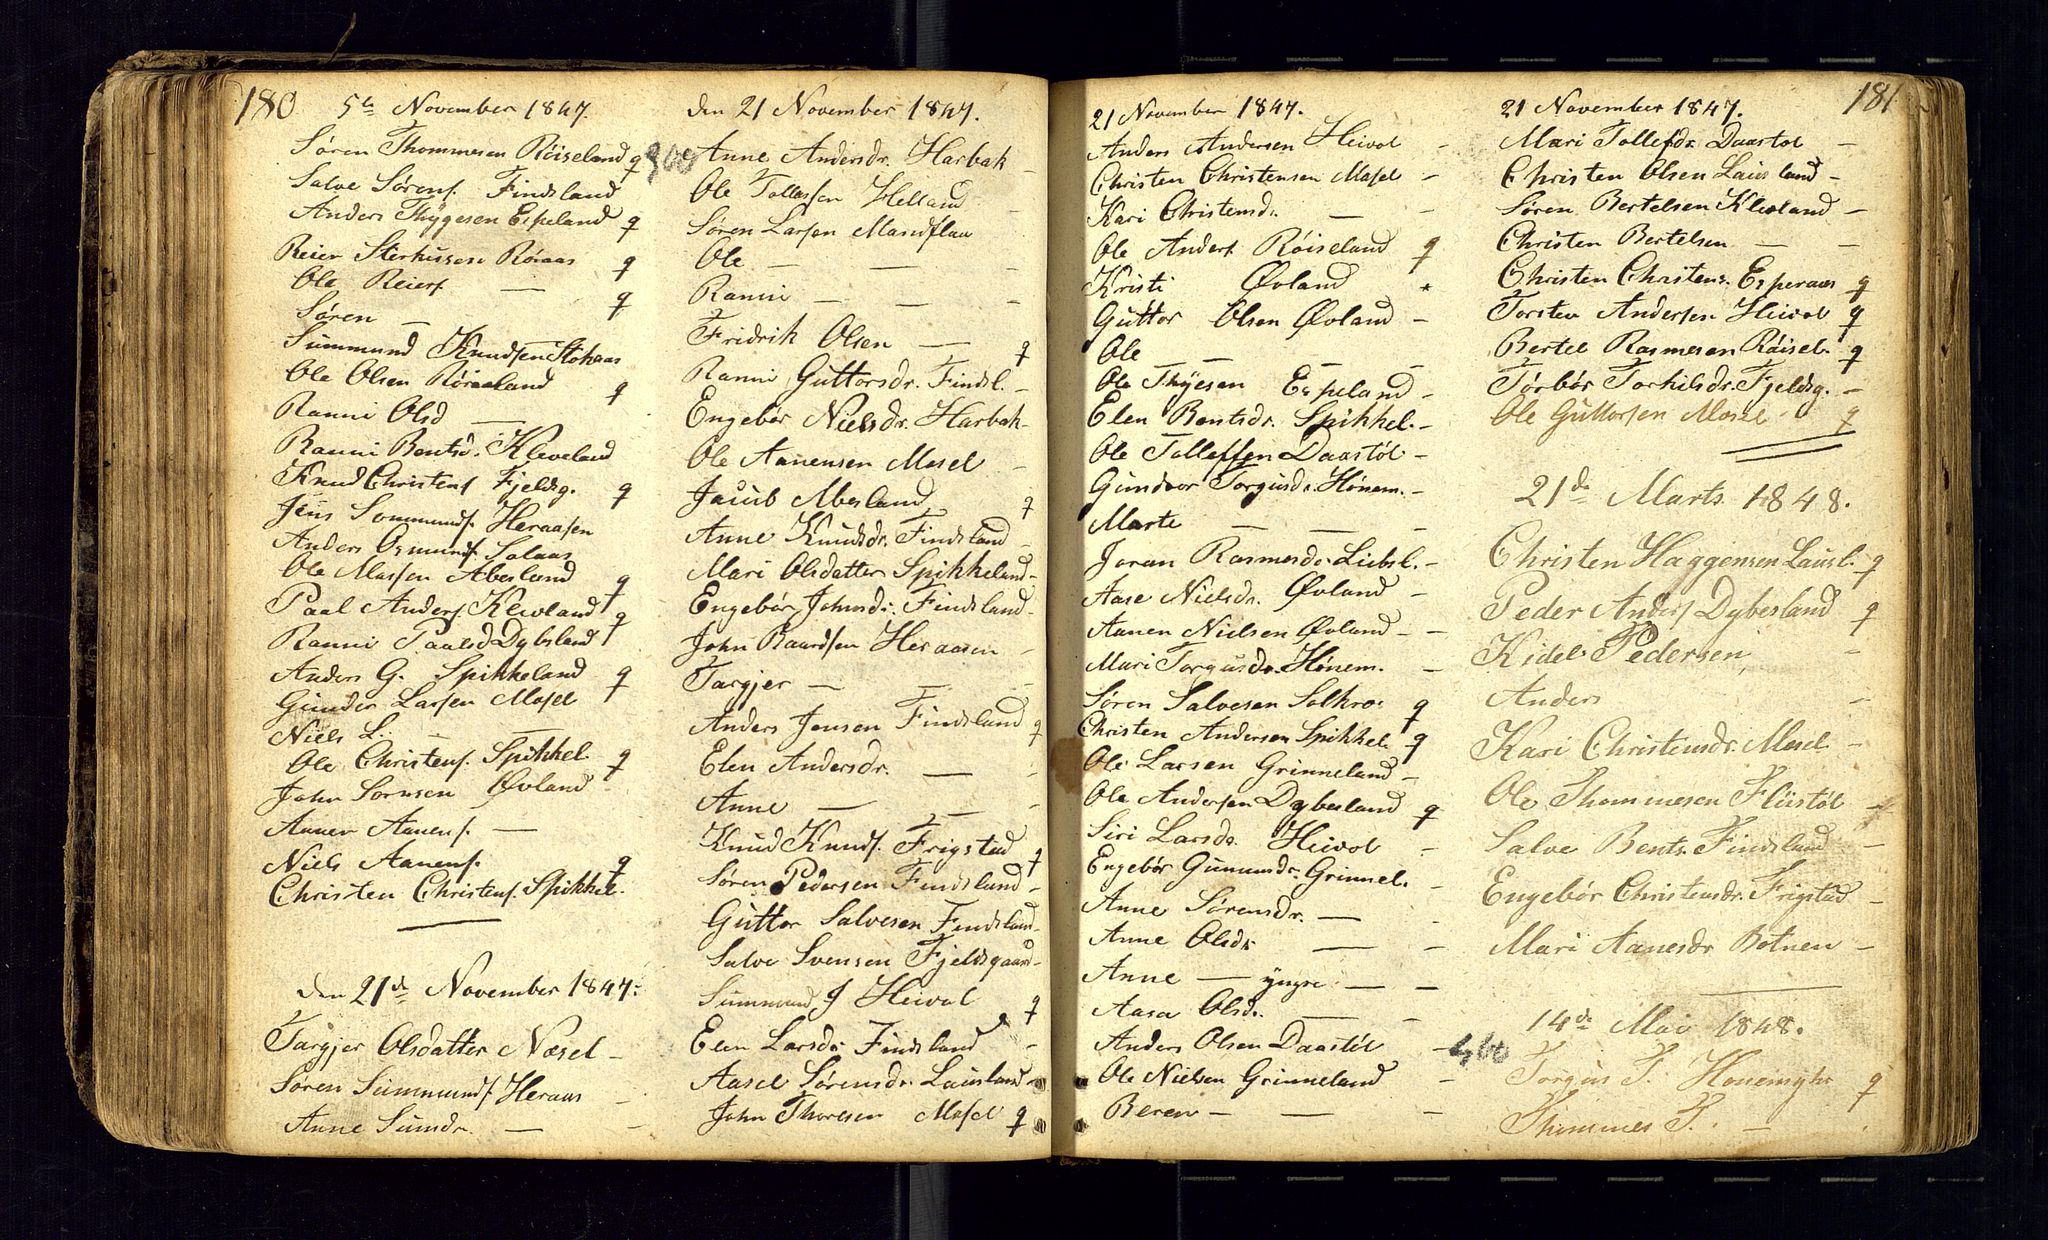 180
5te November 1847.
Søren Thommesen Røiseland q
Salve Sørens. Findsland
Anders Thygesen Espeland q
Reier Sterkussen Røraas q
Ole Reiers. — q
Søren —
Summund Knudsen Stohaas
Ole Olsen Røiseland q
Ranni Olsd —
Ranni Bentsd. Kleveland
Knud Christens Fjeldsg. q
Jens Sommunds. Heraasen
Anders Osmunds. Salaas
Ole Massen Abesland q
Paal Anders. Klevland q
Ranni Paalsd Dybesland
Anders G. Spikkeland q
Gunder Larsen Mosel
Niels L. — —
Ole Christens. Spikkel. q
John Sørnsen Øvland
Aanen Aanens. —
Niels Aanens. q
Christen Christens. Spikkel.
den 21de November 1847.
Targjer Olsdatter Næsel —
Søren Summunds. Heraas —
Anne Sumsdr. — —
den 21 November 1847.
300 Anne Andersdr. Harbak —
Ole Tollafsen Helland —
Søren Larsen Mandflaa
Ole — — —
Ranni — — —
Fridrik Olsen — q
Ranni Guttorsdr. Findsl. —
Engebør Nielsdr. Harbak —
Ole Aanensen Mosel —
Jacob Abesland q
Anne Knudsdr. Findsland —
Mari Olsdatter Spikkeland —
Engebør Johnsdr. Findsland —
John Baardsen Heraasen —
Targjer — — —
Anders Jensen Findsland q
Elen Andersdr. — —
Anne — — —
Knud Knuds. Frigstad q
Søren Pedersen Findsland —
Guttor Salvesen Findsland —
Salve Svensen Fjeldsgaard —
Summund J Heivol q
Elen Larsdr. Findsland —
Aasel Sørensdr. Lausland —
John Thoresen Mosel q
21 November 1847.
Anders Andersen Heivol —
Christen Christensen Mosel —
Kari Christensdr. — —
Ole Anders Røiseland q
Kristi Øvland
Guttor Olsen Øvland —
Ole — — —
Ole Thyesen Espeland —
Elen Bentsdr. Spikkel. —
Ole Tollefsen Daastøl —
Gundvor Torgusdr. Hønem. —
Marte — — —
Joran Rasmusdr. Liebsl. —
Aase Nielsdr. Øvland —
Aanen Nielsen Øvland — —
Mari Torgusdr. Hønem. —
Søren Salvesen Solkro. q
Christen Andersen Spikkel. q
Ole Larsen Grinneland —
Ole Andersen Dybesland q
Siri Larsdr. Heivol —
Engebør Gunnundr. Grinnel. —
Anne Sørensdr. — —
Anne Olsdr. — —
Anne — yngre — —
Aasa Olsdr. — —
Anders Olsen Daastøl —
Ole Nielsen Grinneland —
Beren — — —
181
21 November 1847.
Mari Tollefsdr. Daastøl —
Christen Olsen Lausland —
Søren Bertelsen Klevland —
Christen Bertelsen — —
Christen Christens. Esperaas q
Torsten Andersen Heivol q
Bertel Rasmesen Røisel. q
Tørbør Torkilsdr. Fjeldsg. —
Ole Guttorsen Mosel q
21de Marts 1848.
Christen Haagensen Lausl. q
Peder Anders Dybesland q
Kidel Pedersen —
Anders —
Kari Christensdr. Mosel —
Ole Thommesen Flustøl —
Salve Bents. Findsland —
Engebør Christensdr. Frigstad —
Mari Aanesdr Botnen —
14de Mai 1848.
400 Torgus T. Honemyhr q
Thommes T. —